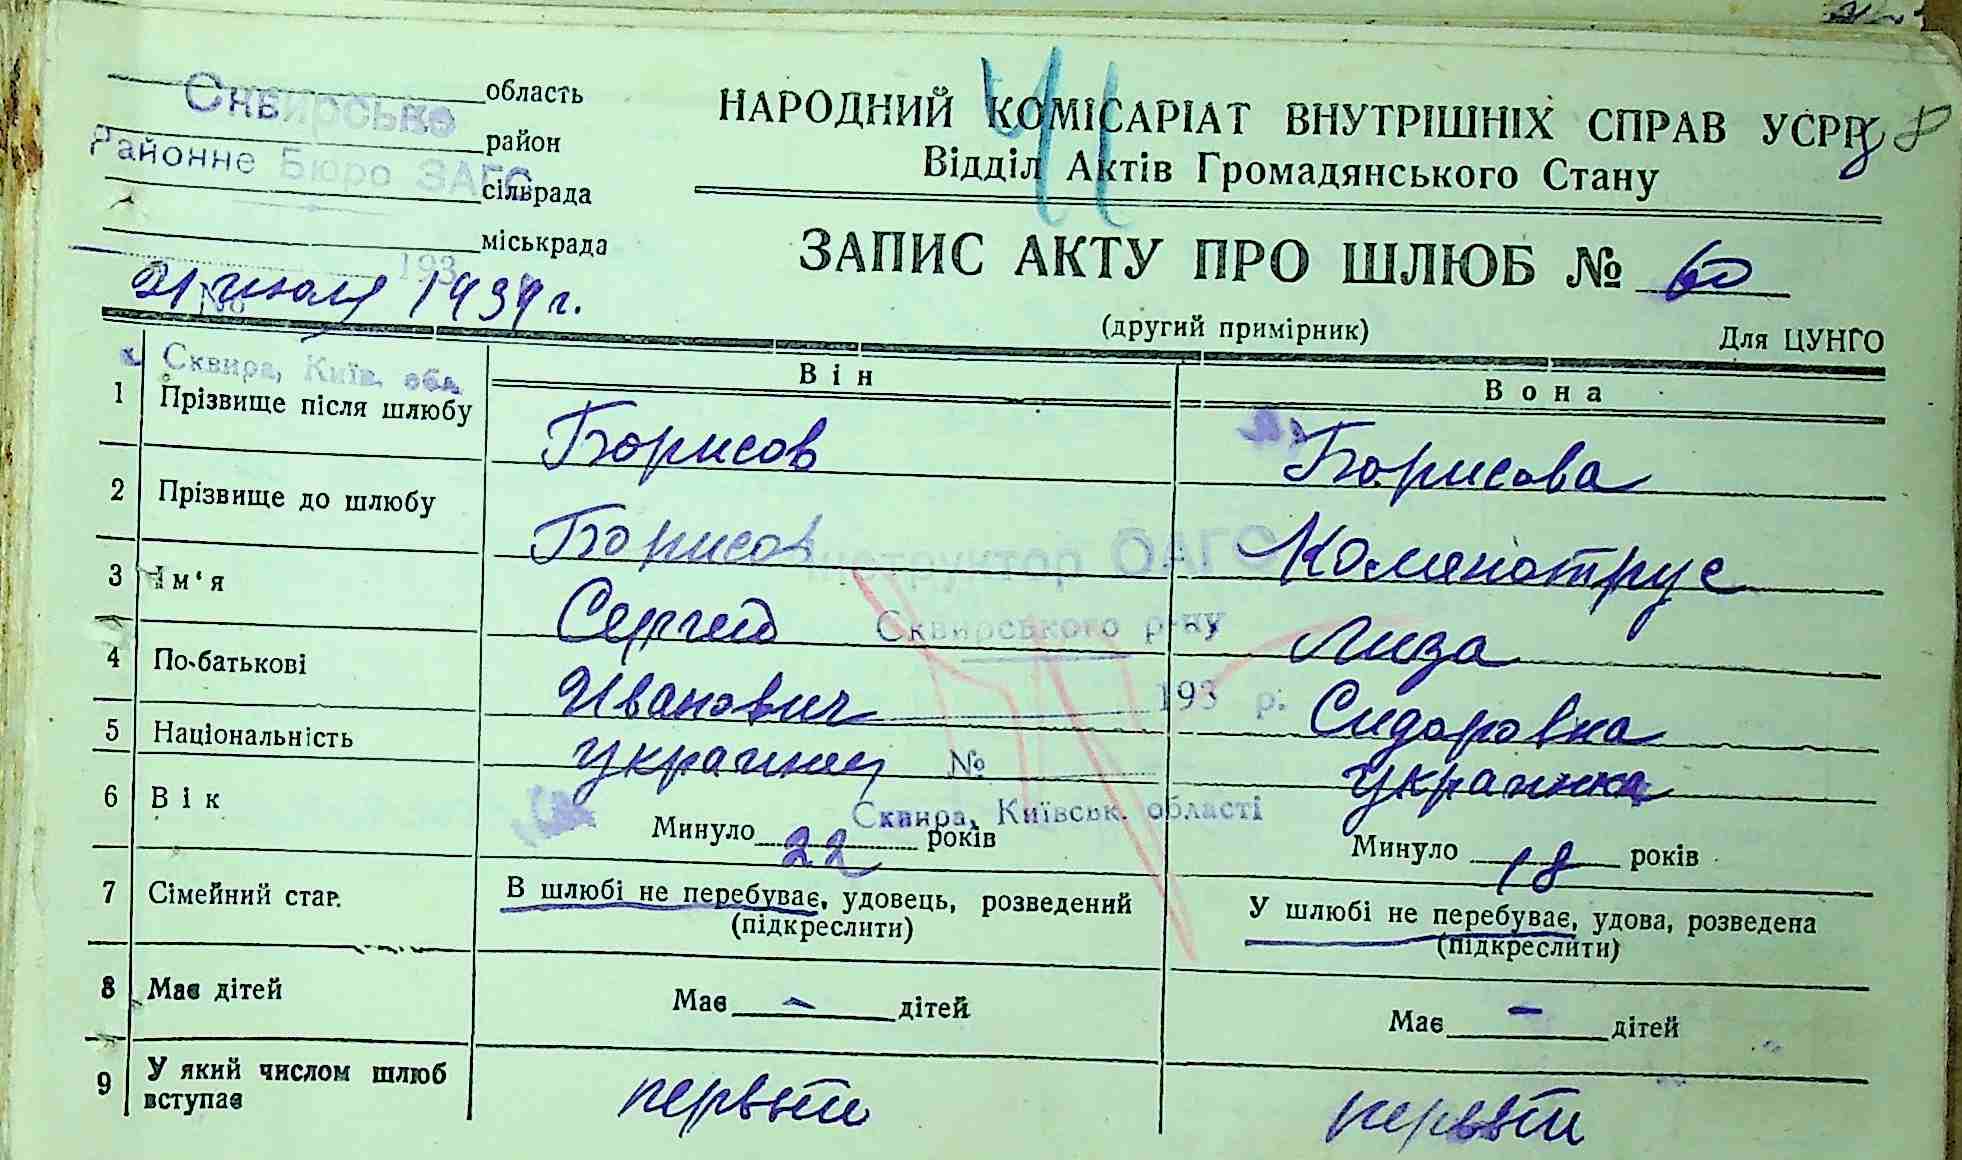 область
Сквирське
район
Районне Бюро ЗАГС
сільрада
міськрада
193
№
21 июля 1939 г.
Сквира, Київ. обл.
НАРОДНИЙ КОМІСАРІАТ ВНУТРІШНІХ СПРАВ УСРР
Відділ Актів Громадянського Стану
ЗАПИС АКТУ ПРО ШЛЮБ № 60
(другий примірник) Для ЦУНГО
Він Вона
1 Прізвище після шлюбу Борисов Борисова
2 Прізвище до шлюбу Борисов
Інструктор ОАГС
3 Ім‘я Сергей Лиза
Сквирського р-ну
4 По-батькові Иванович Сидоровна
193 р.
5 Національність украинец украинка
№
Сквира, Київськ. області
6 Вік Минуло 22 років Минуло 18 років
7 Сімейний стан. В шлюбі не перебуває, удовець, розведений У шлюбі не перебуває, удова, розведена
(підкреслити) (підкреслити)
8 Має дітей Має - дітей Має - дітей
9 У який числом шлюб
вступає первый первый